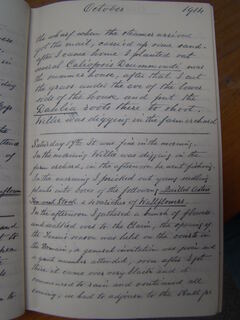 October 1914
the wharf when the steamer arrived
got the mail, carried up some sand.
After I came home I planted out
several Calliopsis Drummondi near
the summer house, after that I cut
the grass under the eve of the lower
side of the house, and put the
Dahlia roots there to shoot.
Willie was digging in the farm orchard
Saturday 17th. It was fine in the morning.
In the morning Willie was digging in the
farm orchard, in the afternoon he went fishing.
In the morning I pricked out young seedling
plants into boxes of the following, Quilled Asters
Ten week Stock, & varieties of Wallflowers.
In the afternoon I gathered a bunch of flowers
and walked over to the Chain, the opening of
the Tennis season was held on the courts in
the Domain, a general invitation was given and
a good number attended, soon after I got
there it came over very black and it
commenced to rain and continued all
evening, we had to adjourn to the